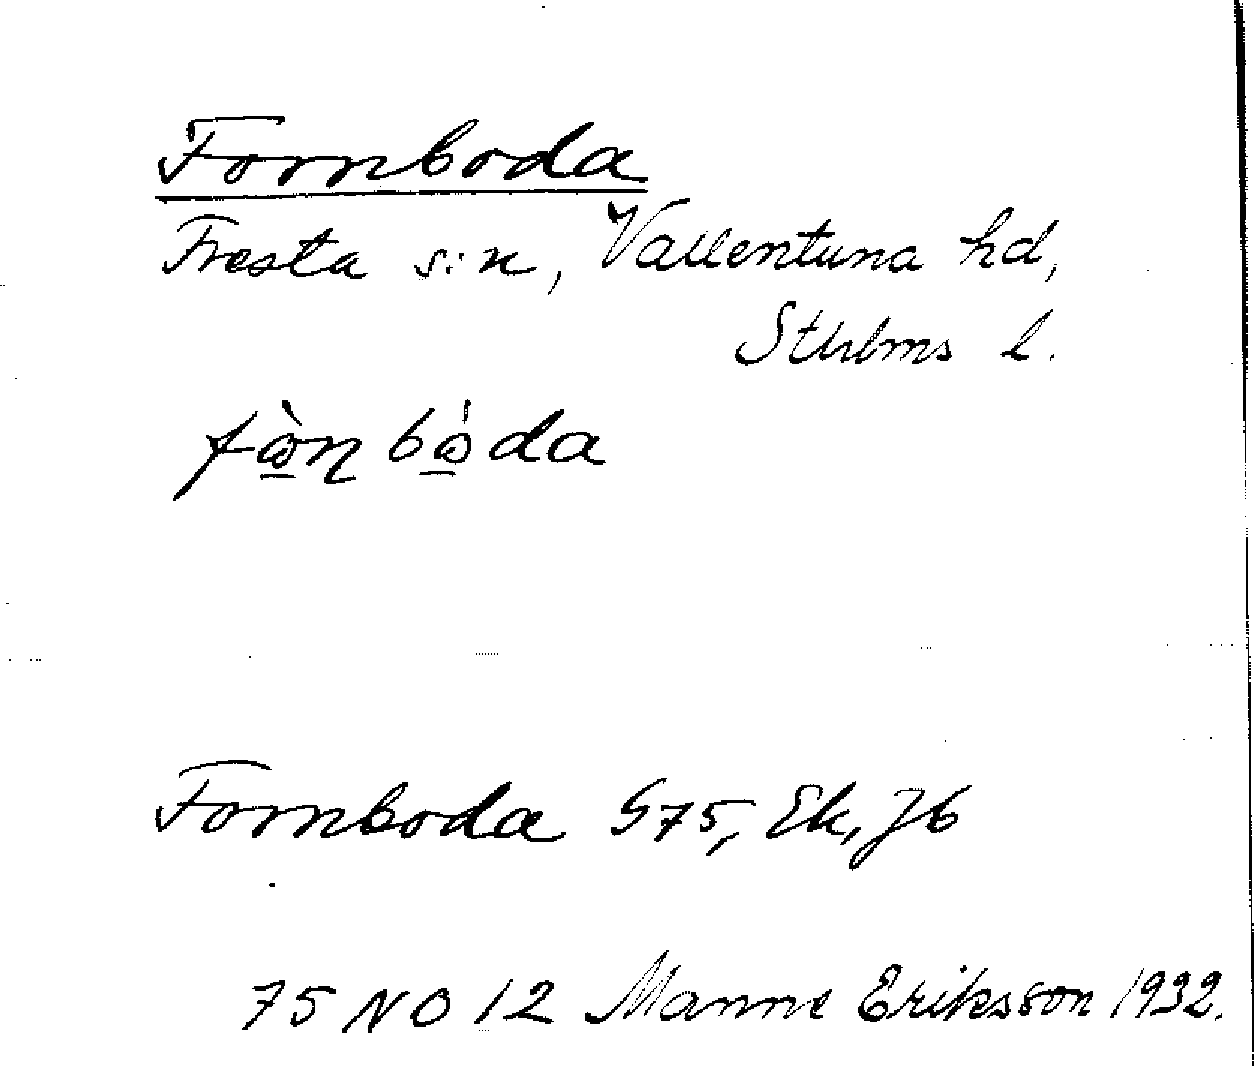 Fornboda
Fresta s:n, Vallentuna hd,
Sthlms l.
fɷ̠̀ɳbɷ̠́da
Fornboda G75, Ek, Jb
75 NO 12 Manne Eriksson 1932.